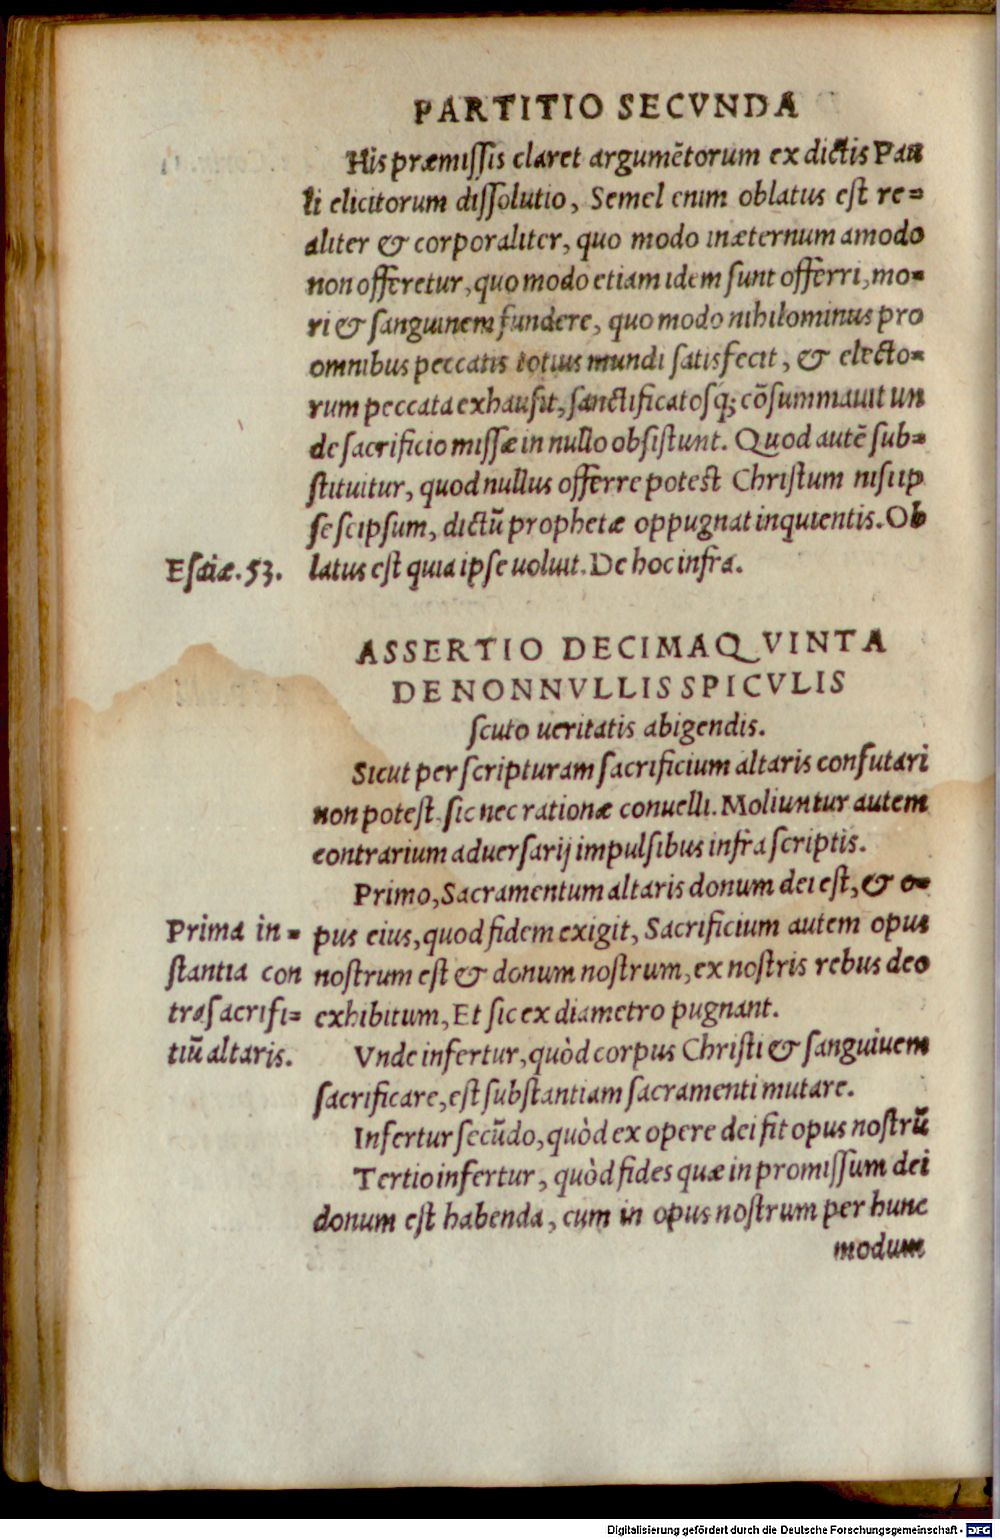 PARTITIO SECVNDA
His præmissis claret argumẽtorum ex dictis Pau
li elicitorum dissolutio, Semel enim oblatus est re=
aliter & corporaliter, quo modo inæternum amodo
non offeretur, quo modo etiam idem sunt offerri, mo=
ri & sanguinem fundere, quo modo nihilominus pro
omnibus peccatis totius mundi satisfecit, & electo=
rum peccata exhausit, sanctificatosq́; cõsummauit un
de sacrificio missæ in nullo obsistunt. Quod autẽ sub=
stituitur, quod nullus offerre potest Christum nisi ip
se seipsum, dictũ prophetæ oppugnat inquientis. Ob
Esaiæ. 53. latus est quia ipse uoluit. De hoc infra.
ASSERTIO DECIMAQVINTA
DE NONNVLLIS SPICVLIS
scuto ueritatis abigendis.
Sicut per scripturam sacrificium altaris confutari
non potest sic nec rationæ conuelli. Moliuntur autem
contrarium aduersarij impulsibus infra scriptis.
Primo, Sacramentum altaris donum dei est, & o=
Prima in= pus eius, quod fidem exigit, Sacrificium autem opus
stantia con nostrum est & donum nostrum, ex nostris rebus deo
tra sacrifi= exhibitum, Et sic ex diametro pugnant.
tiũ altaris. Vnde infertur, quòd corpus Christi & sanguiuem
sacrificare, est substantiam sacramenti mutare.
Infertur secũdo, quòd ex opere dei fit opus nostrũ
Tertio infertur, quòd fides quæ in promissum dei
donum est habenda, cum in opus nostrum per hunc
modum
Digitalisierung gefördert durch die Deutsche Forschungsgemeinschaft - DFG